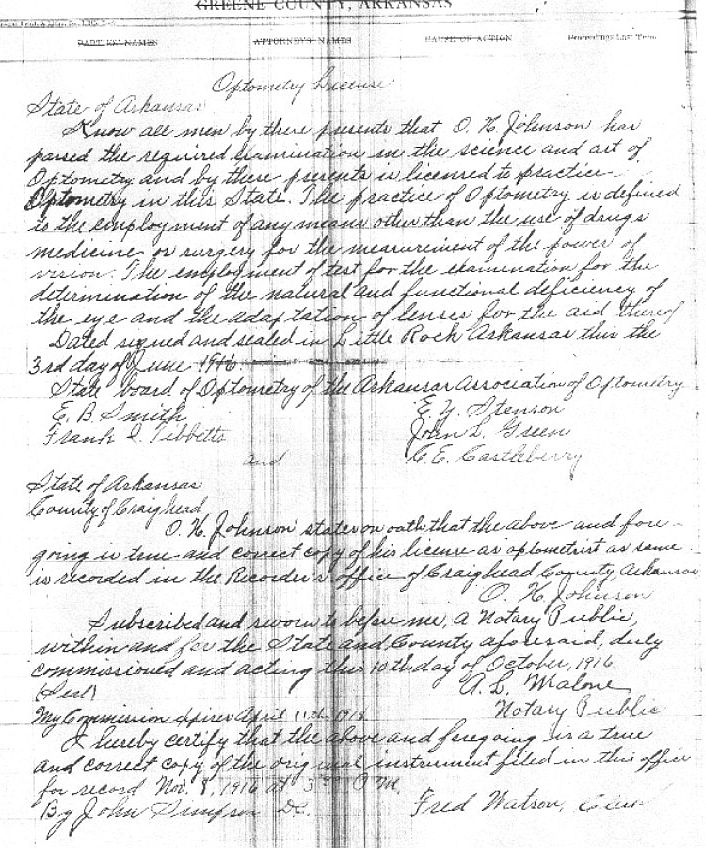 GREENE COUNTY, ARKANSAS
PARTIES' NAMES ATTORNEY'S NAMES CAUSE OF ACTION
Optometry License
State of Arkansas
Know all men by these presents that O. H. Johnson has
passed the required examination in the science and art of
Optometry and by these presents is licensed to practice
Optometry in this State. The practice of Optometry is defined
to the employment of any means other than the use of drugs
medicine or surgery for the measurement of the power of
vision. The employment of test for the examination for the
determination of the natural and functional deficiency of
the eye and the adaptation of lenses for the aid thereof
Dated signed and sealed in Little Rock Arkansas this the
3rd day of June 1916.
State board of Optometry of the Arkansas Association of Optometry
E. B. Smith E. Y. Stenson
Frank I. Tibbetts John L. Green
and C. E. Castleberry
State of Arkansas
County of Craighead
O. H. Johnson states on oath that the above and fore-
going is true and correct copy of his license as optometrist as same
is recorded in the Recorder's office of Craighead County Arkansas
O. H. Johnson
Subscribed and sworn to before me, a Notary Public,
within and for the State and County aforesaid, duly
commissioned and acting this 10th day of October, 1916
(Seal) A. L. Malone
My Commission Expires April 11th 191 Notary Public
I hereby certify that the above and foregoing is a true
and correct copy of the original instrument filed in this office
for record Nov. 8, 1916 at 3 P M.
By John Simpson D.C. Fred Watson, Clerk